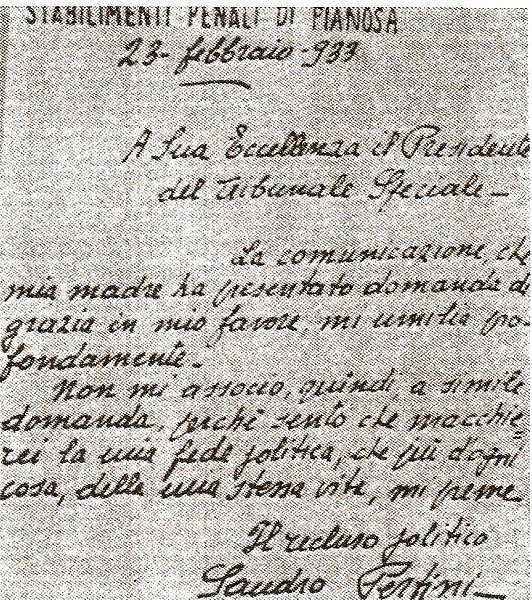 STABILIMENTI PENALI DI PIANOSA
23-febbraio-933
A Sua Eccellenza il Presidente
del Tribunale Speciale-
La comunicazione, che
mia madre ha presentato domanda di
grazia in mio favore, mi umilia pro
fondamente-
Non mi associo, quindi, a simile
domanda, perchè sento che macchie
rei la mia fede politica, che più d'ogni
cosa, della mia stessa vita, mi preme-
Il recluso politico
Sandro Pertini-